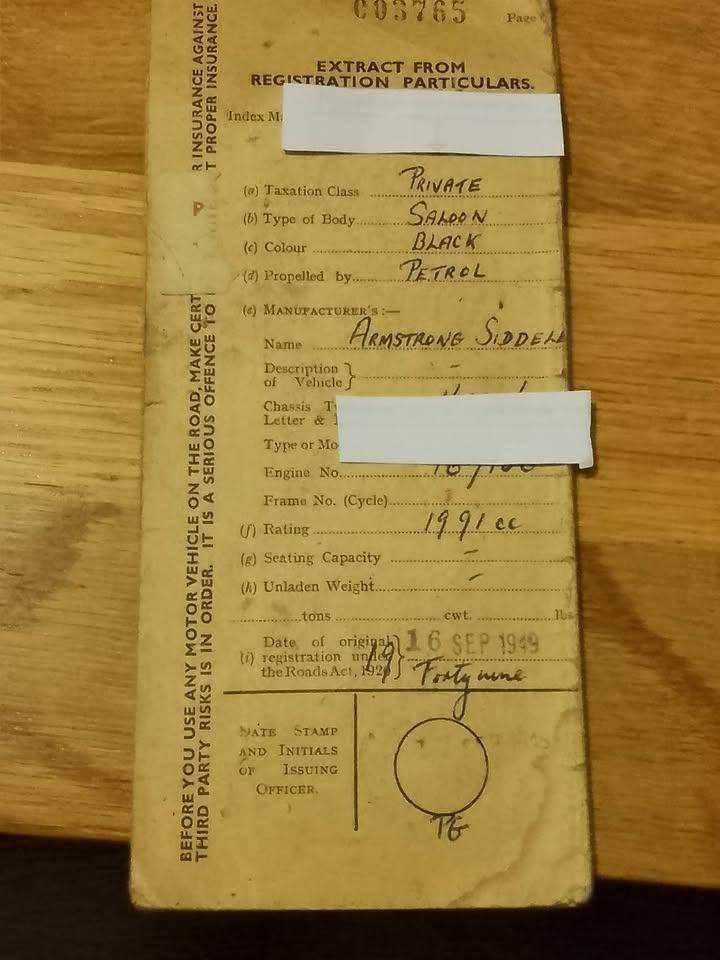 C03765
Page
EXTRACT FROM
REGISTRATION PARTICULARS.
Index
(a) Taxation Class PRIVATE
(b) Type of Body SALOON
(c) Colour BLACK
(d) Propelled by PETROL
(e) MANUFACTURER'S :—
Name ARMSTRONG SIDDELL
Description
of Vehicle } -
Chassis
Letter &
Type or
Engine No.
Frame No. (Cycle)
(f) Rating 1991 cc
(g) Seating Capacity -
(h) Unladen Weight -
tons cwt. lbs
Date of original
(i) registration under
the Roads Act, 1920 } 16 SEP 1949
19 Forty nine
DATE STAMP
AND INITIALS
OF ISSUING
OFFICER.
R INSURANCE AGAINST
T PROPER INSURANCE.
P
BEFORE YOU USE ANY MOTOR VEHICLE ON THE ROAD, MAKE CERT
THIRD PARTY RISKS IS IN ORDER. IT IS A SERIOUS OFFENCE TO